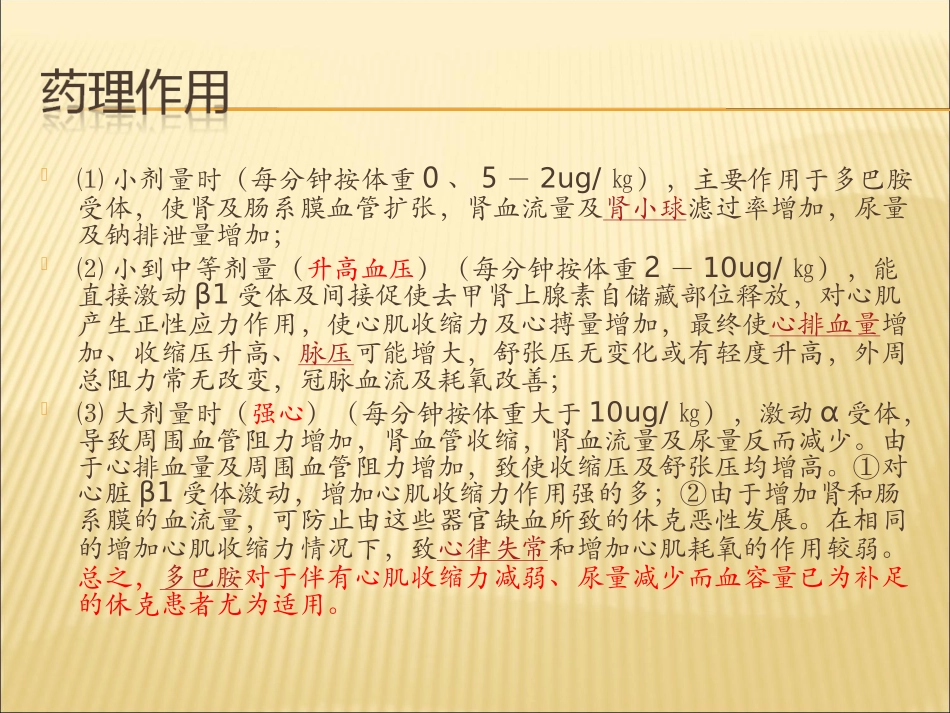 药理作用
⑴ 小剂量时（每分钟按体重 0 、 5 － 2ug/ ㎏），主要作用于多巴胺
受体，使肾及肠系膜血管扩张，肾血流量及肾小球滤过率增加，尿量
及钠排泄量增加；
⑵ 小到中等剂量（升高血压）（每分钟按体重 2 － 10ug/ ㎏），能
直接激动 β1 受体及间接促使去甲肾上腺素自储藏部位释放，对心肌
产生正性应力作用，使心肌收缩力及心搏量增加，最终使心排血量增
加、收缩压升高、脉压可能增大，舒张压无变化或有轻度升高，外周
总阻力常无改变，冠脉血流及耗氧改善；
⑶ 大剂量时（强心）（每分钟按体重大于 10ug/ ㎏），激动 α 受体，
导致周围血管阻力增加，肾血管收缩，肾血流量及尿量反而减少。由
于心排血量及周围血管阻力增加，致使收缩压及舒张压均增高。①对
心脏 β1 受体激动，增加心肌收缩力作用强的多；②由于增加肾和肠
系膜的血流量，可防止由这些器官缺血所致的休克恶性发展。在相同
的增加心肌收缩力情况下，致心律失常和增加心肌耗氧的作用较弱。
总之，多巴胺对于伴有心肌收缩力减弱、尿量减少而血容量已为补足
的休克患者尤为适用。